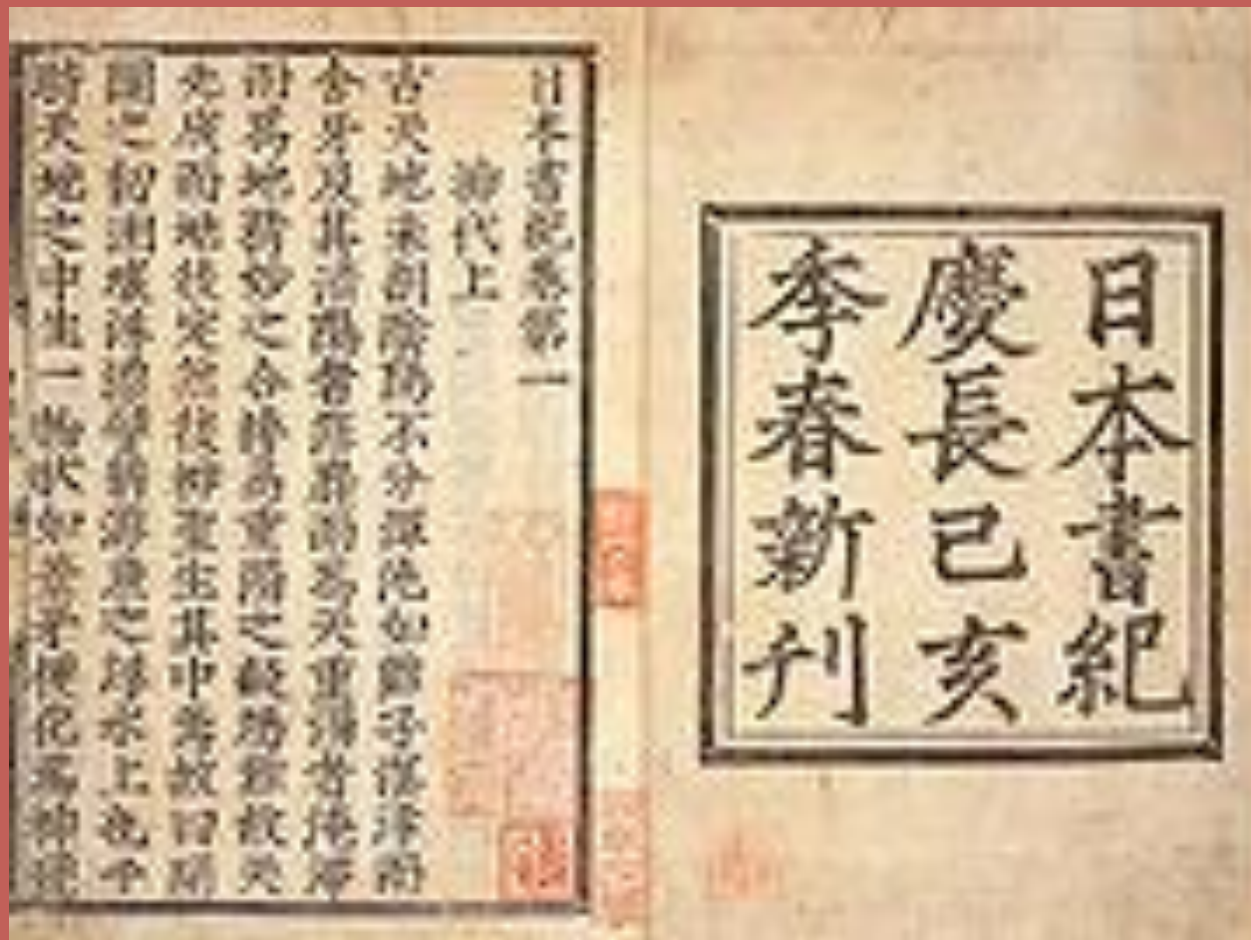 日本書紀
慶長己亥
季春新刊
日本書紀巻第一
神代上
古天地未剖陰陽不分渾沌如鷄子溟涬而
含牙及其清陽者薄靡而為天重濁者淹滯
而為地精妙之合搏易重濁之凝場難故天
先成而地後定然後神聖生其中焉故曰開
闢之初洲壤浮漂譬猶游魚之浮水上也于
時天地之中生一物狀如葦牙便化為神號